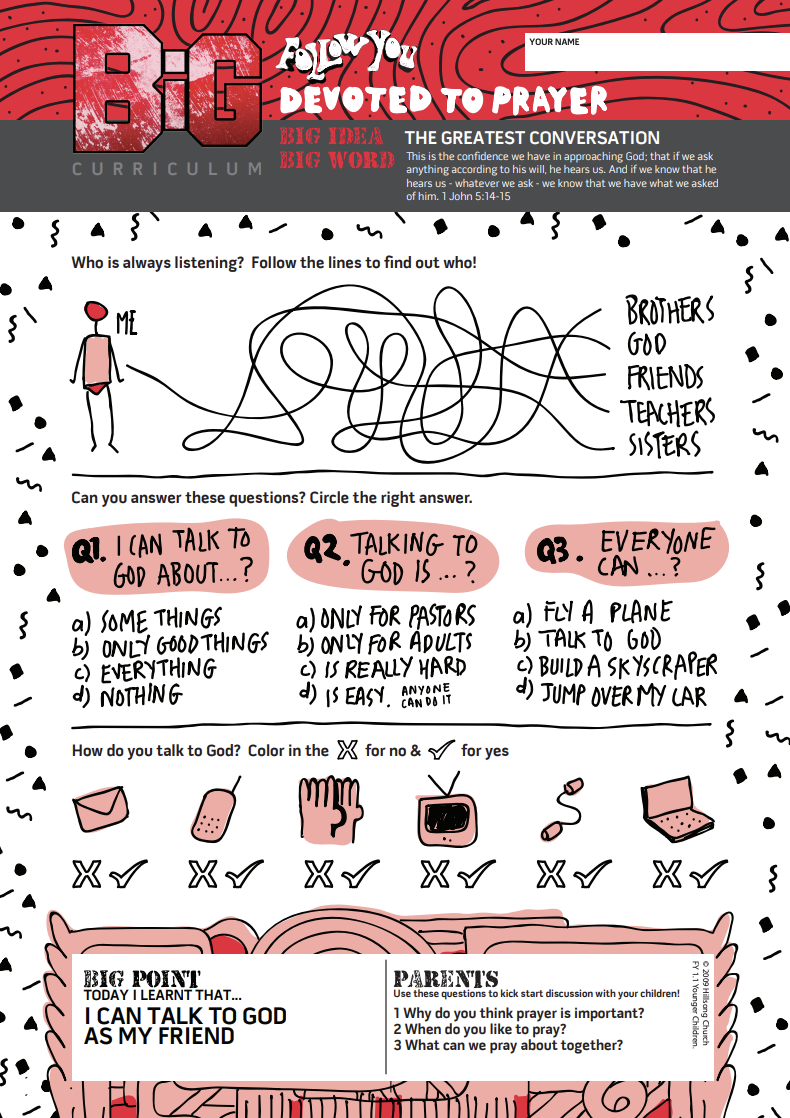 BIG
CURRICULUM
FOLLOW YOU
DEVOTED TO PRAYER
YOUR NAME
BIG IDEA
BIG WORD
THE GREATEST CONVERSATION
This is the confidence we have in approaching God; that if we ask
anything according to his will, he hears us. And if we know that he
hears us - whatever we ask - we know that we have what we asked
of him. 1 John 5:14-15
Who is always listening? Follow the lines to find out who!
ME
BROTHERS
GOD
FRIENDS
TEACHERS
SISTERS
Can you answer these questions? Circle the right answer.
Q1. I CAN TALK TO
GOD ABOUT...?
a) SOME THINGS
b) ONLY GOOD THINGS
c) EVERYTHING
d) NOTHING
Q2. TALKING TO
GOD IS ... ?
a) ONLY FOR PASTORS
b) ONLY FOR ADULTS
c) IS REALLY HARD
d) IS EASY. ANYONE
CAN DO IT
Q3. EVERYONE
CAN ...?
a) FLY A PLANE
b) TALK TO GOD
c) BUILD A SKYSCRAPER
d) JUMP OVER MY CAR
How do you talk to God? Color in the X for no & ✓ for yes
X ✓ X ✓ X ✓ X ✓ X ✓ X ✓
BIG POINT
TODAY I LEARNT THAT...
I CAN TALK TO GOD
AS MY FRIEND
PARENTS
Use these questions to kick start discussion with your children!
1 Why do you think prayer is important?
2 When do you like to pray?
3 What can we pray about together?
© 2009 Hillsong Church
FY 1.1 Younger Children.